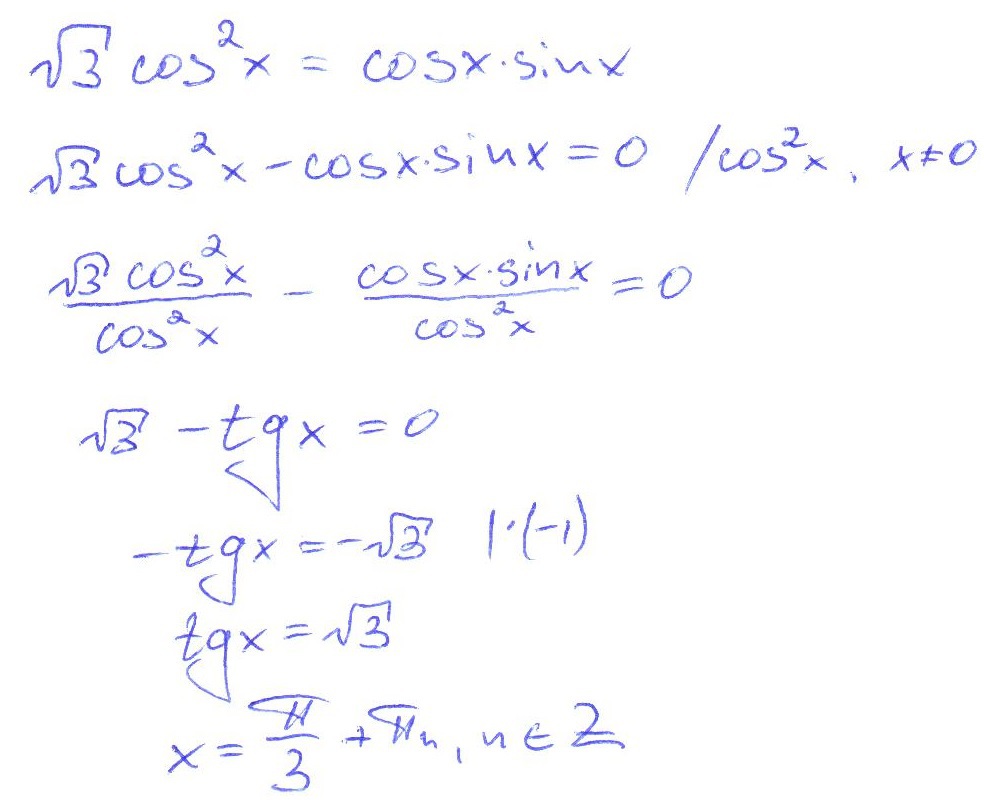 √3 cos²x = cosx·sinx
√3 cos²x - cosx·sinx = 0 /cos²x, x≠0
√3 cos²x/cos²x - cosx·sinx/cos²x = 0
√3 - tgx = 0
-tgx = -√3 |·(-1)
tgx = √3
x = π/3 + πn, n ∈ Z